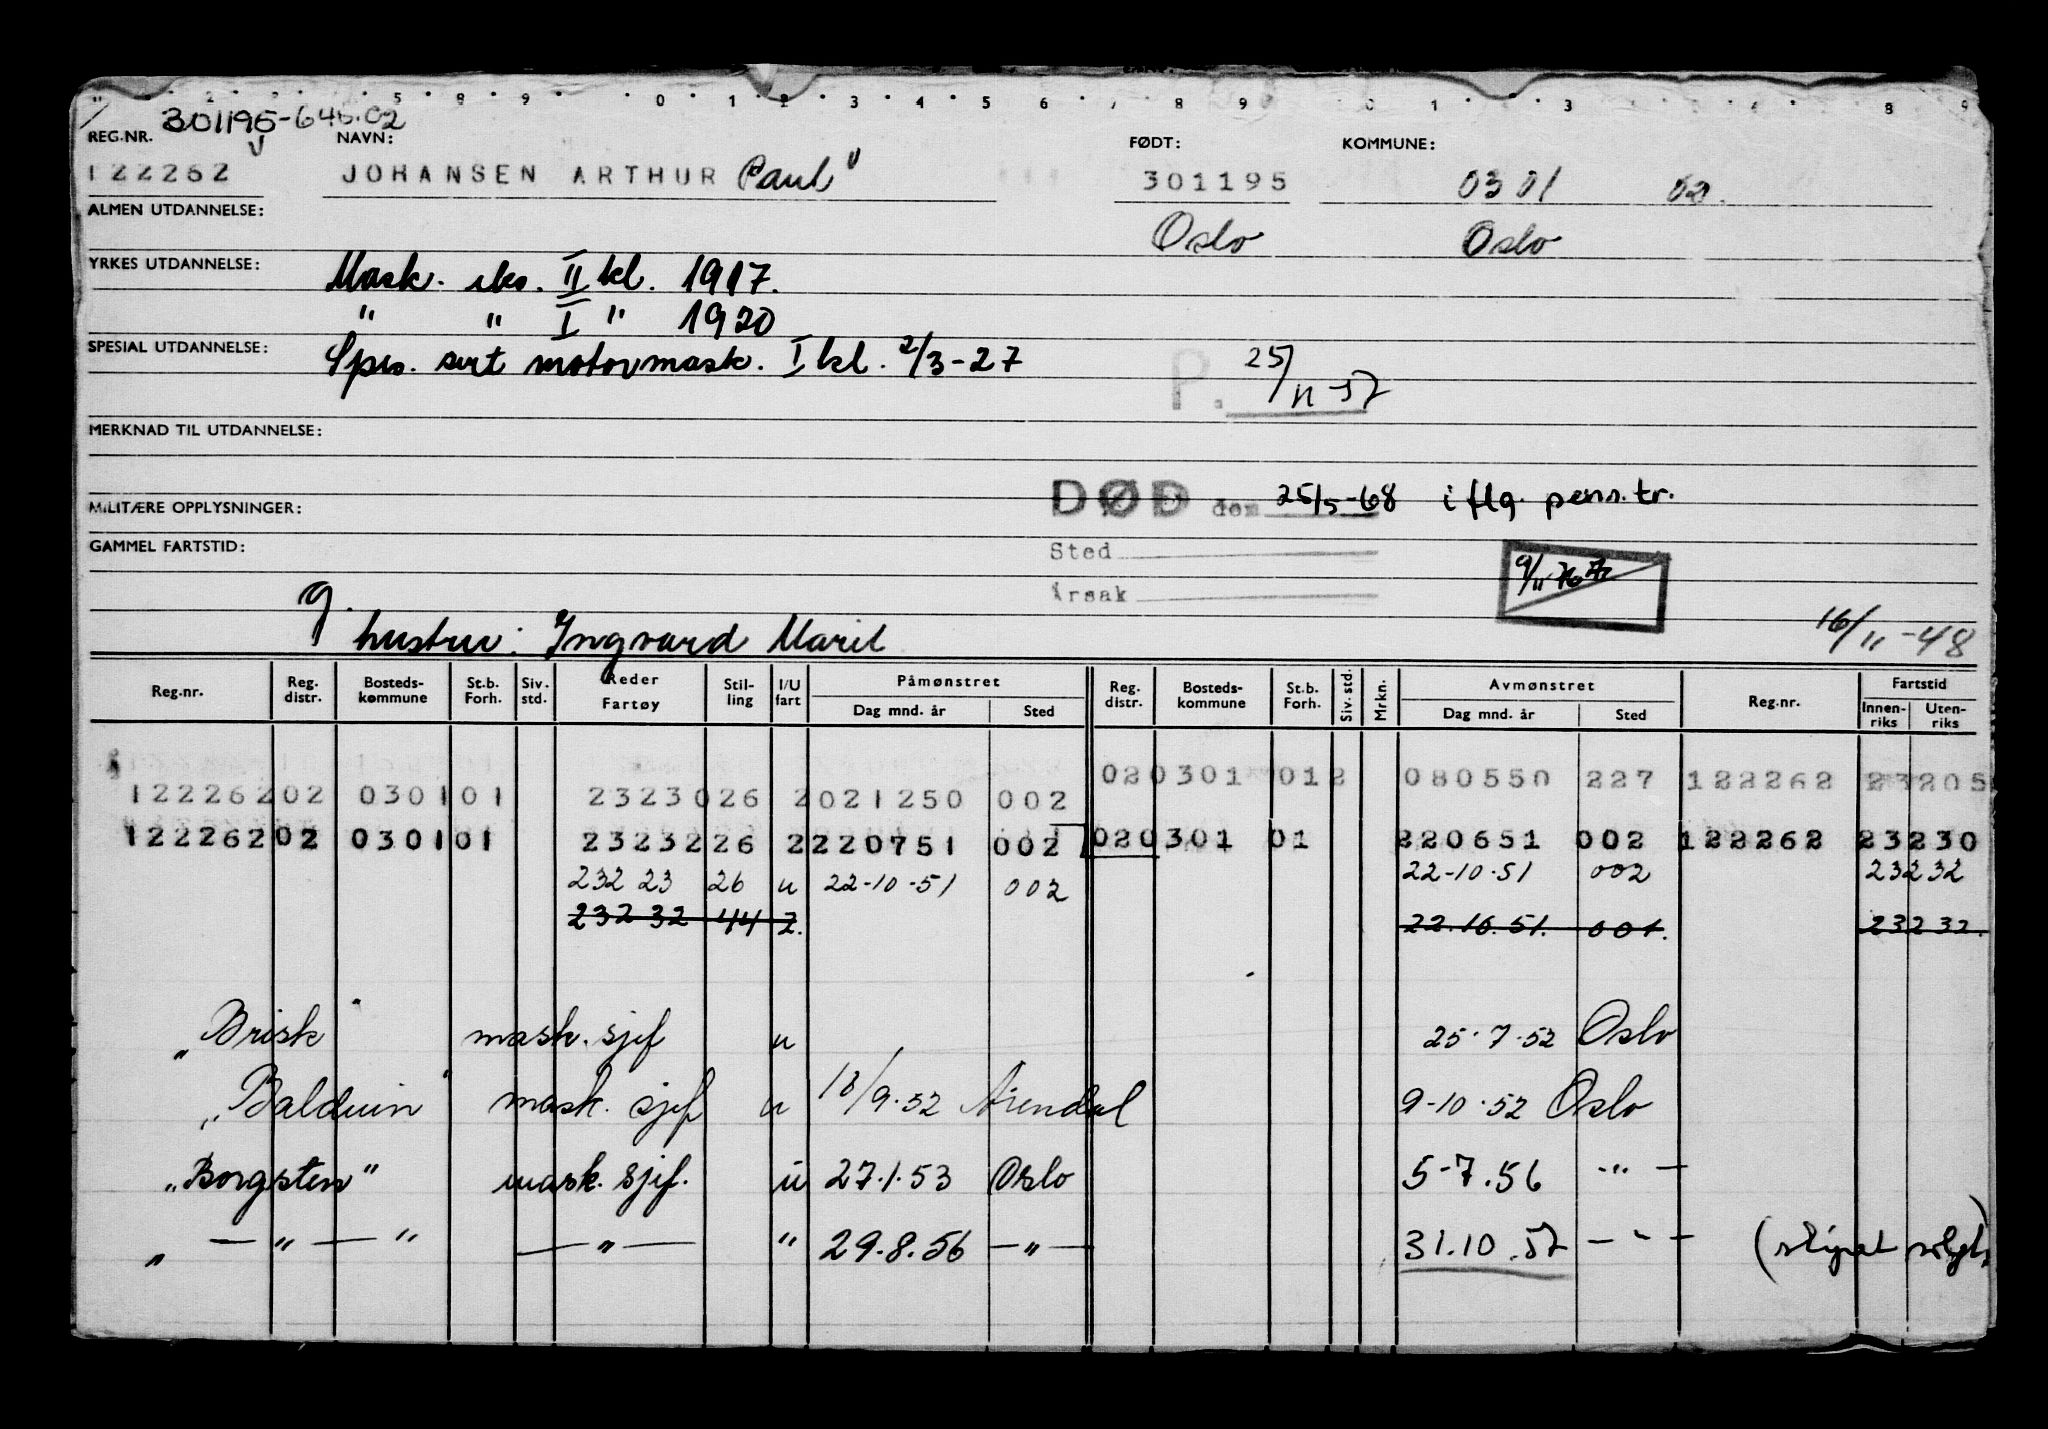 301195-646.02
REG.NR. NAVN: FØDT: KOMMUNE:
122262 JOHANSEN ARTHUR Paul 301195 0301 02.
ALMEN UTDANNELSE: Oslo Oslo
YRKES UTDANNELSE: Mask. eks. II kl. 1917.
" " I " 1920
SPESIAL UTDANNELSE: Spes. sert motormask. I kl. 2/3-27
P. 25/11-57
MERKNAD TIL UTDANNELSE:
DØD den 25/5-68 iflg. pens.tr.
MILITÆRE OPPLYSNINGER:
GAMMEL FARTSTID: Sted
9/11-76
Årsak
g.
hustru: Ingvard Maril 16/11-48
Reg.nr. Reg. distr. Bosteds-kommune St.b. Forh. Siv. std. Reder Fartøy Stil-ling I/U fart Påmønstret Dag mnd. år Sted Reg. distr. Bosteds-kommune St.b. Forh. Siv. std. Mrkn. Avmønstret Dag mnd. år Sted Reg.nr. Fartstid Innen-riks Uten-riks
020301 012 080550 227 122262 23205
12226202 030101 2323026 2021250 002
12226202 030101 2323226 2220751 002 020301 01 220651 002 122262 23230
232 23 26 u 22-10-51 002 22-10-51 002 23232
232 32 44 2. 22.10.51. 001. 23232.
"Brisk" mask. sjef u 25.7.52 Oslo
"Balduin" mask. sjef u 18/9.52 Arendal 9-10.52 Oslo
"Borgsten" mask. sjef. u 27.1.53 Oslo 5-7.56 -"-
" — " — " — " — " 29.8.56 -"- 31.10.57 -"- (skipet solgt)